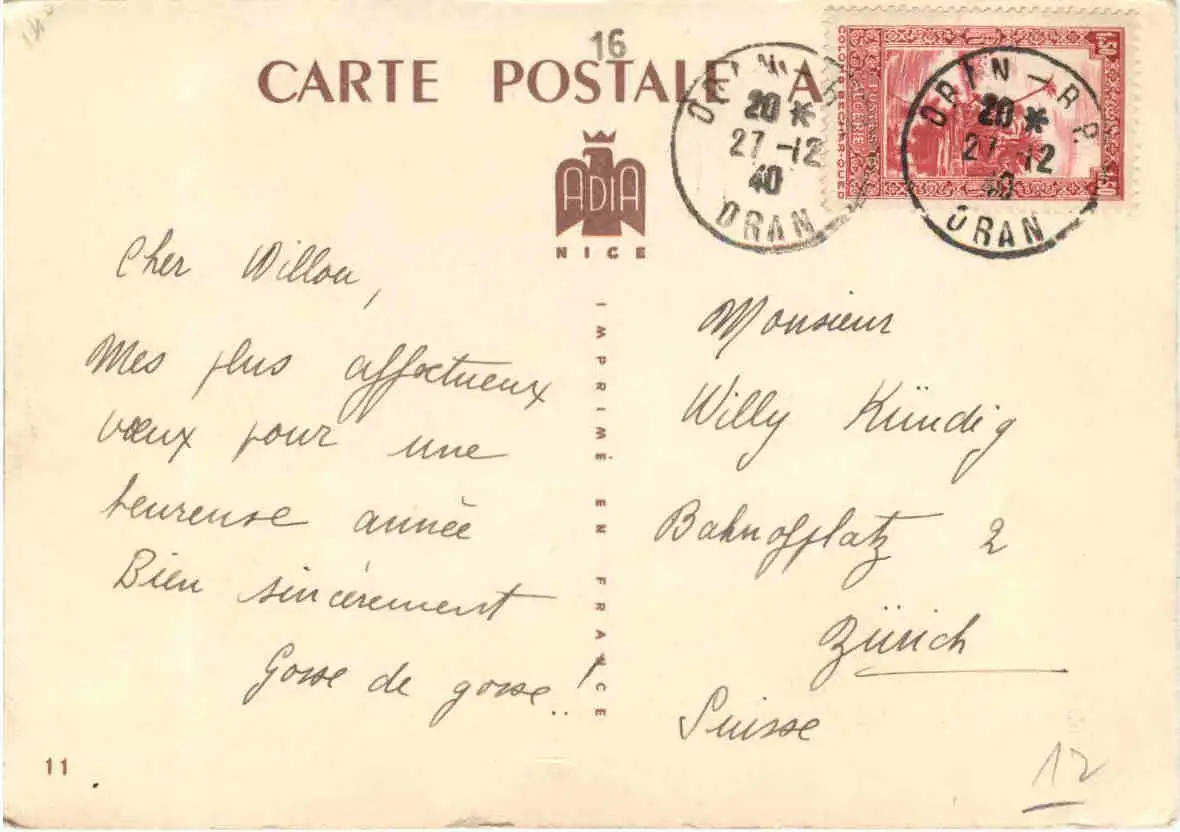 16
CARTE POSTALE A
ADIA
NICE
IMPRIMÉ EN FRANCE
ORAN-RP.
20 *
27-12
40
ORAN
20 *
27-12
40
ORAN
1F50
POSTES
ALGERIE
COLOMB-BECHAR-OUED
1F50
Cher Willou,
Mes plus affectueux
vœux pour une
heureuse année
Bien sincèrement
Gosse de gosse..!
Monsieur
Willy Kündig
Bahnofplatz 2
Zürich
Suisse
11
12